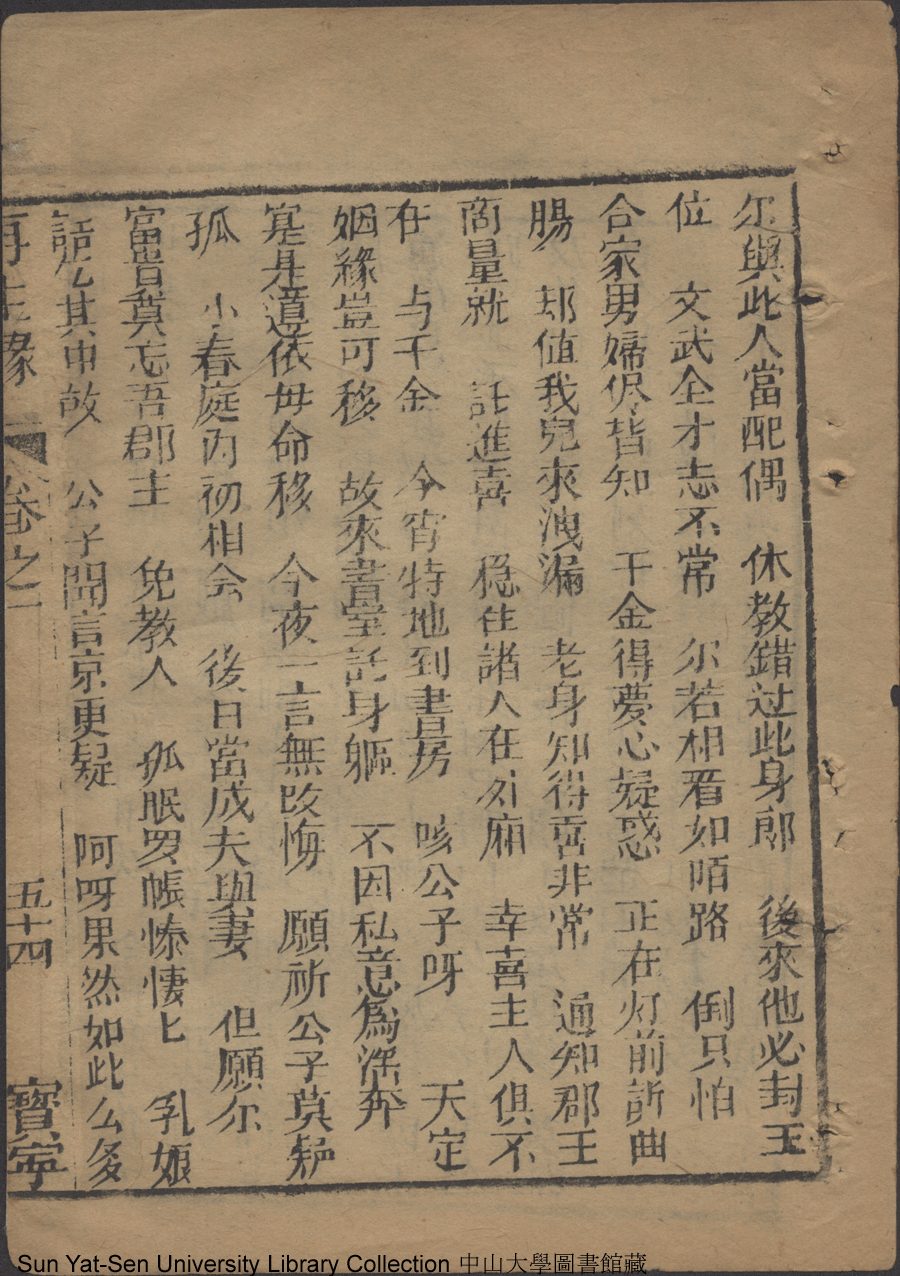 尔與此人當配偶　休教錯过此身郎　後來他必封王
位　文武全才志不常　尔若相看如陌路　倒只怕
合家男婦侭皆知　千金得夢心疑惑　正在灯前訴曲
腸　却值我兒來洩漏　老身知得喜非常　通知郡主
商量就　託進喜　穏住諸人在外廂　幸喜主人俱不
在　与千金　今宵特地到書房　咳公子呀　天定
姻緣豈可移　故來書堂託身軀　不因私意為滛奔
寔是遵依母命移　今夜一言無改悔　願祈公子莫疑
孤　小春庭内初相会　後日當成夫與妻　但願尔
富貴莫忘吾郡主　免教人　孤眠罗帳惨悽匕　乳娘
話先其中故　公子聞言京更疑　阿呀果然如此么多
再生緣　卷之二　五十四　寶寧
Sun Yat-Sen University Library Collection 中山大學圖書館藏